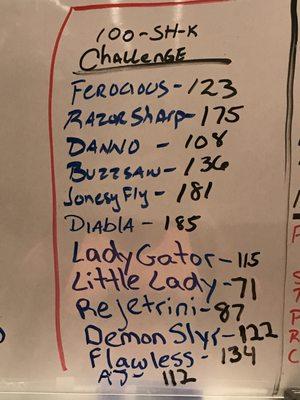 100-SH-K
Challenge
Ferocious - 123
RazorSharp - 175
Danno - 108
Buzzsaw - 136
JonesyFly - 181
Diabla - 185
Lady Gator - 115
Little Lady - 71
Rejetrini - 87
Demon Slyr - 122
Flawless - 134
AJ - 112